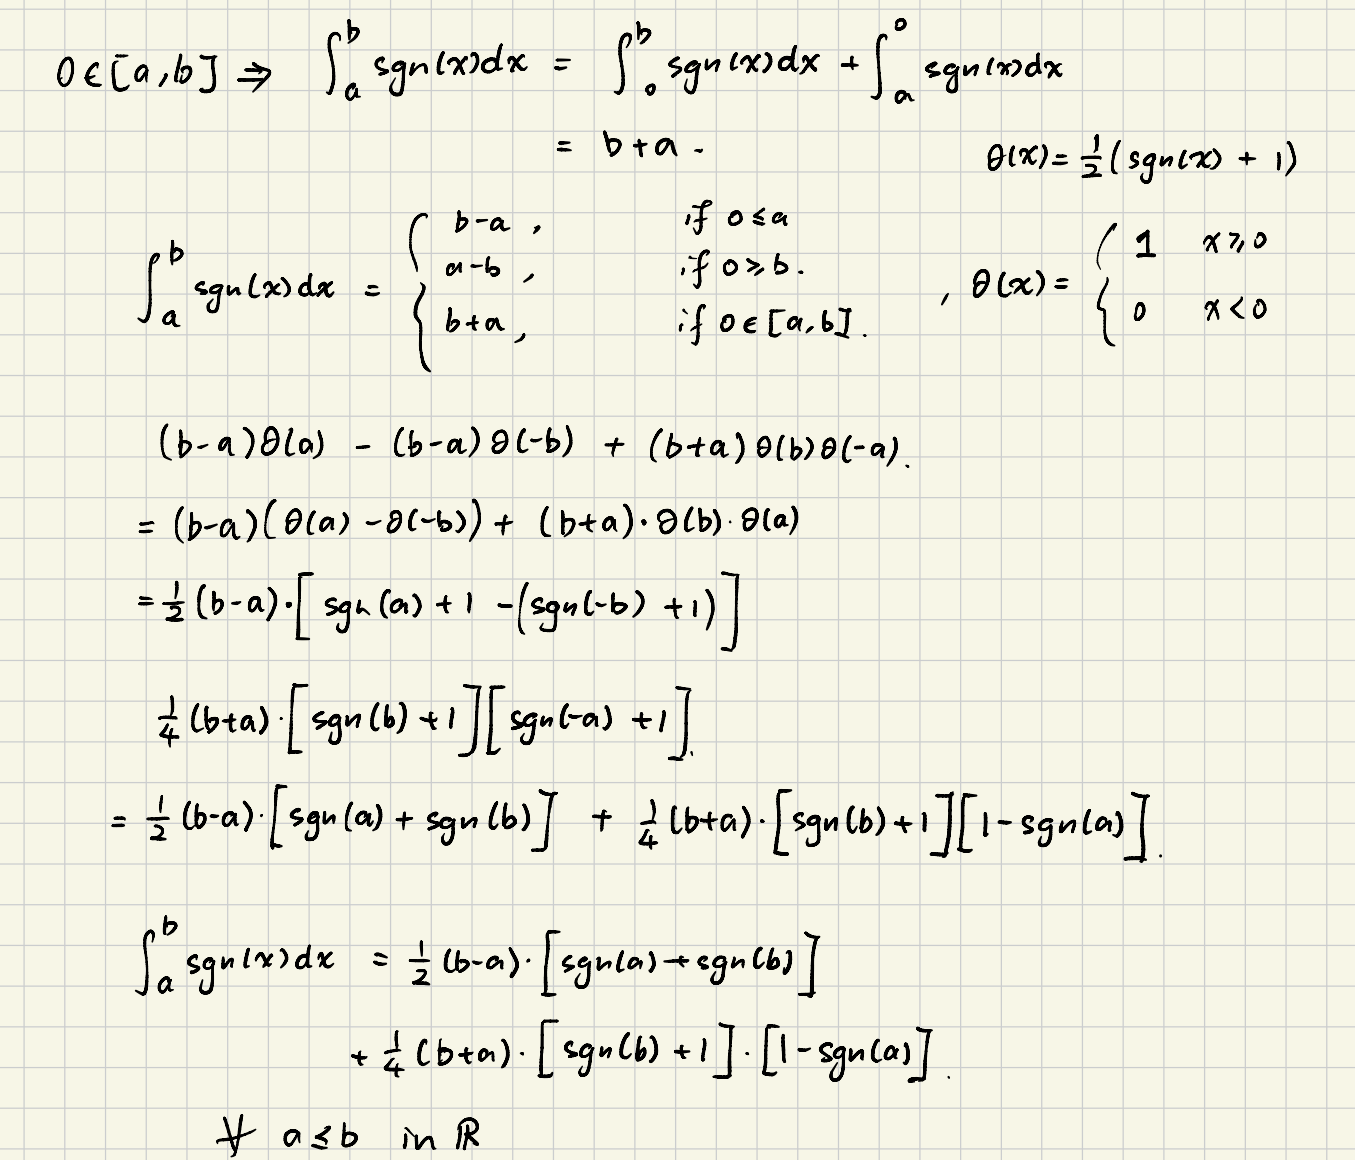 0 ∈ [a, b] ⇒ ∫_a^b sgn(x)dx = ∫_0^b sgn(x)dx + ∫_a^0 sgn(x)dx
= b+a.
θ(x) = 1/2 (sgn(x) + 1)
∫_a^b sgn(x)dx = { b-a, if 0 ≤ a
a-b, if 0 ≥ b.
b+a, if 0 ∈ [a, b].
, θ(x) = { 1 x ≥ 0
0 x < 0
(b-a)θ(a) - (b-a)θ(-b) + (b+a)θ(b)θ(-a).
= (b-a)(θ(a) - θ(-b)) + (b+a)·θ(b)·θ(a)
= 1/2 (b-a)·[sgn(a) + 1 - (sgn(-b) + 1)]
1/4 (b+a)·[sgn(b) + 1][sgn(-a) + 1].
= 1/2 (b-a)·[sgn(a) + sgn(b)] + 1/4 (b+a)·[sgn(b) + 1][1 - sgn(a)].
∫_a^b sgn(x)dx = 1/2 (b-a)·[sgn(a) + sgn(b)]
+ 1/4 (b+a)·[sgn(b) + 1]·[1 - sgn(a)].
∀ a ≤ b in ℝ